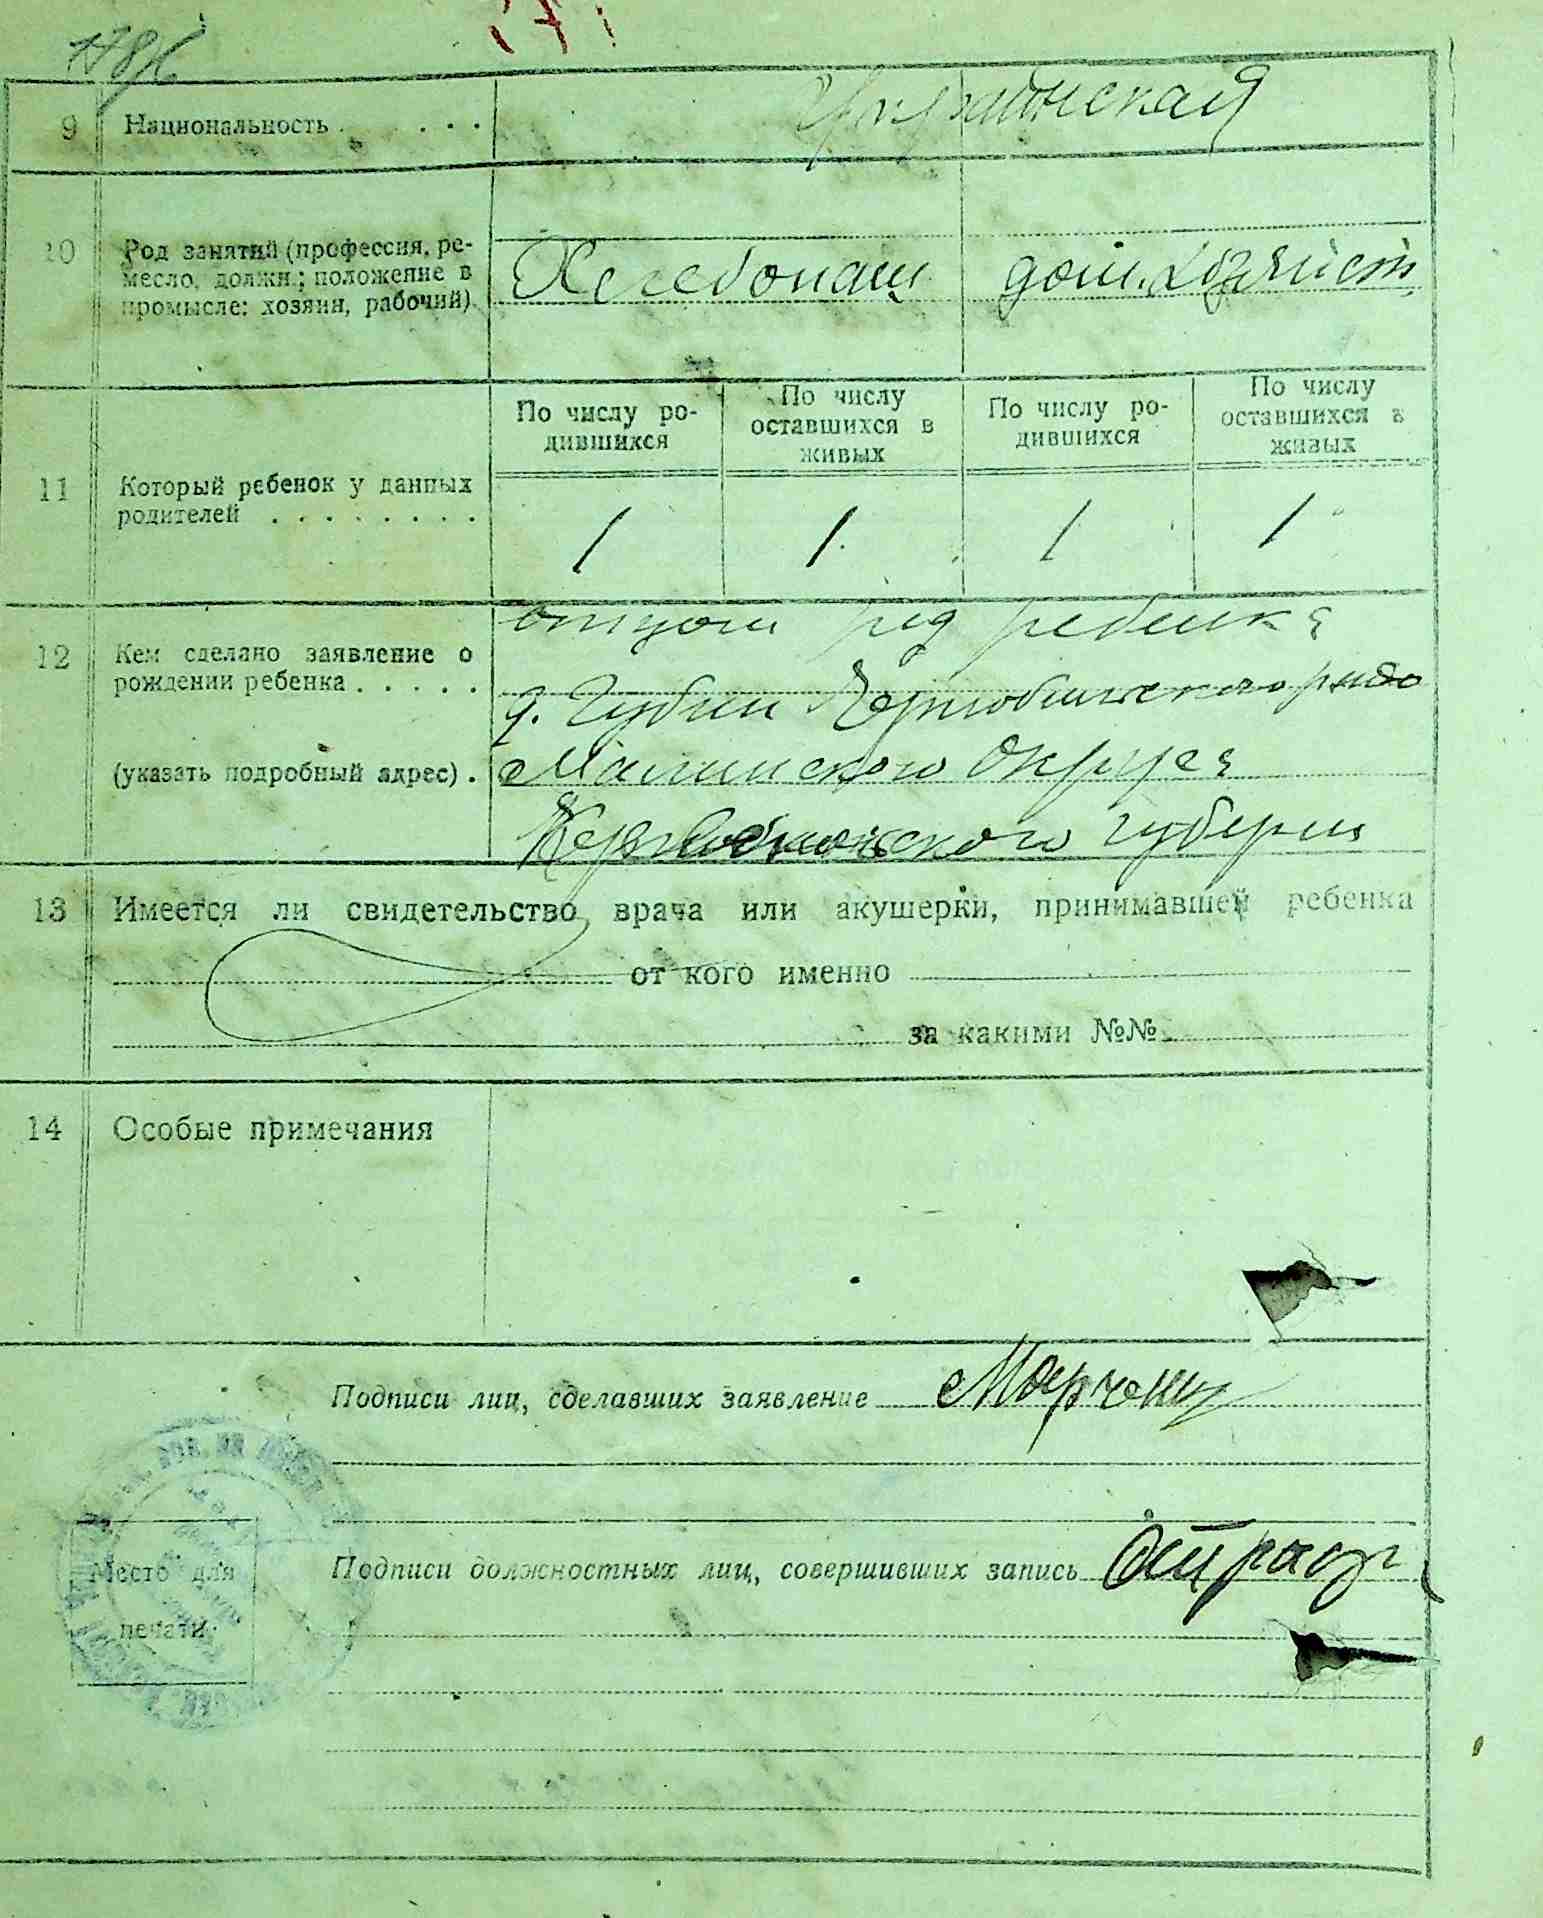 9 Национальность . . . . . украинская
10 Род занятий (профессия, ре-
месло, должн.; положение в
промысле: хозяин, рабочий)
Хлебопаш дом. хозяйств.
11 Который ребенок у данных
родителей . . . . . . . .
По числу ро-
дившихся
По числу
оставшихся в
живых
По числу ро-
дившихся
По числу
оставшихся в
живых
1 1 1 1
12 Кем сделано заявление о
рождении ребенка . . . . .
(указать подробный адрес) .
отцом ребенка
д. Губин Чернобыльского
Малинского округа
губерни
13 Имеется ли свидетельство врача или акушерки, принимавшей ребенка
от кого именно
за какими №№
14 Особые примечания
Подписи лиц, сделавших заявление Марченк
Подписи должностных лиц, совершивших запись
Место для
печати